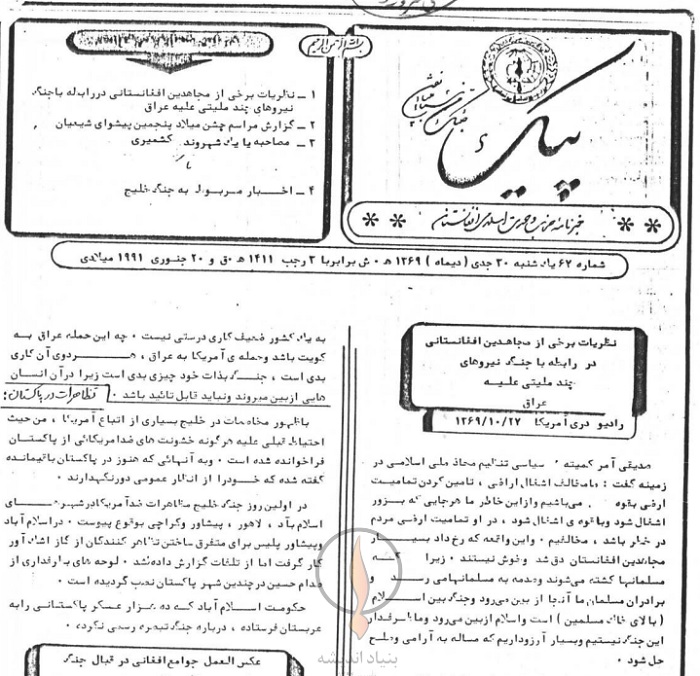 بسم الله الرحمن الرحیم
پیک
خبرنامه حزب وحدت اسلامی افغانستان
۱ ــ نظریات برخی از مجاهدین افغانستانی در رابطه با جنگ
نیروهای چند ملیتی علیه عراق
۲ ــ گزارش مراسم جشن میلاد پنجمین پیشوای شیعیان
۳ ــ مصاحبه با یک شهروند کشمیری
۴ ــ اخبار مربوط به جنگ خلیج
شماره ۶۲ یکشنبه ۳۰ جدی (دیماه) ۱۳۶۹ ه‍ ش برابر با ۳ رجب ۱۴۱۱ ه‍ ق و ۲۰ جنوری ۱۹۹۱ میلادی
نظریات برخی از مجاهدین افغانستانی
در رابطه با جنگ نیروهای
چند ملیتی علیه
عراق
رادیو دری آمریکا ۱۳۶۹/۱۰/۲۷
صدیقی آمر کمیته سیاسی تنظیم محاذ ملی اسلامی در
زمینه گفت : ما مخالف اشغال ارضی ، تامین کردن تمامیت
ارضی بقوه میباشیم و از این خاطر ما هر جایی که بزور
اشغال شود و با قوه ی اشغال شود ، در او تمامیت ارضی مردم
در خطر باشد ، مخالفیم . و این واقعه که رخ داد بسیار
مجاهدین افغانستان دق شد و خوش نیستند . زیرا که
مسلمانها کشته می‌شوند و صدمه به مسلمانها می رسد و
برادران مسلمان ما آنجا از بین می‌رود و جنگ بین اسلام
( بالای خاک مسلمین ) است و اسلام از بین می‌رود و ما طرفدار
این جنگ نیستیم و بسیار آرزو داریم که مساله به آرامی و صلح
حل شود .
به یک کشور ضعیف کاری درستی نیست . چه این حمله عراق به
کویت باشد و حمله ی آمریکا به عراق ، هر دوی آن کاری
بدی است ، جنگ بذات خود چیزی بدی است زیرا در آن انسان
هایی از بین میروند و نباید قابل تائید باشد .
تظاهرات در پاکستان:
با ظهور مخاصمات در خلیج بسیاری از اتباع آمریکا ، من حیث
احتیاط قبلی علیه هر گونه خشونت های ضد امریکائی از پاکستان
فراخوانده شده است . و به آنهائی که هنوز در پاکستان باقیمانده
گفته شده که خود را از انظار عمومی دور نگهدارند .
در اولین روز جنگ خلیج مظاهرات ضد آمریکا در شهر های
اسلام آباد ، لاهور ، پیشاور و کراچی بوقوع پیوست . در اسلام آباد
و پیشاور پلیس برای متفرق ساختن تظاهر کنندگان از گاز اشک آور
کار گرفت اما از تلفات گزارش داده نشد . لوحه های بطرفداری از
صدام حسین در چندین شهر پاکستان نصب گردیده است .
حکومت اسلام آباد که ده هزار عسکر پاکستانی را به
عربستان فرستاده ، درباره جنگ تبصره رسمی نکرده .
عکس العمل جوامع افغانی در قبال جنگ
بنیاد اندیشه